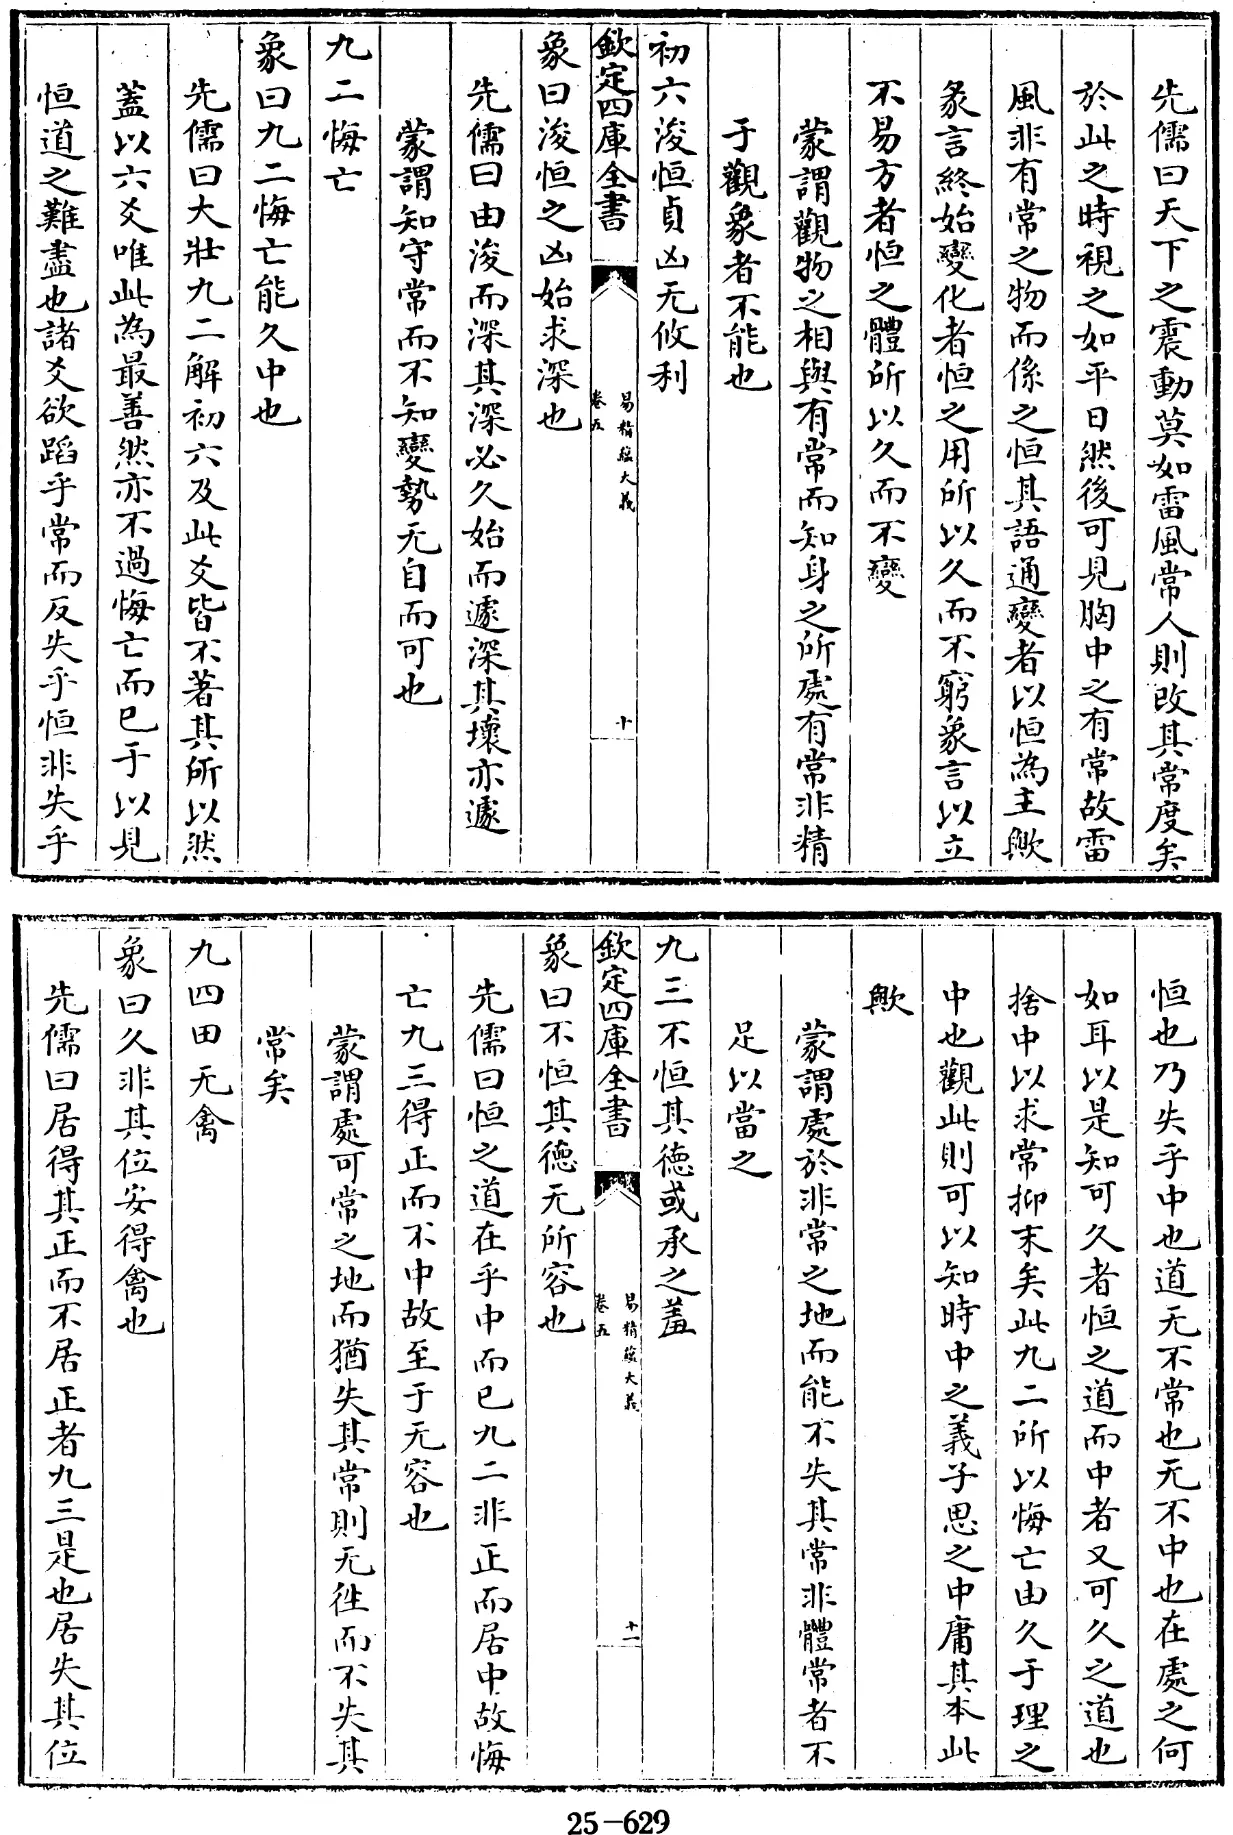 先儒曰天下之震動莫如雷風常人則改其常度矣
於此之時視之如平日然後可見胸中之有常故雷
風非有常之物而係之恒其語通變者以恒為主歟
彖言終始變化者恒之用所以久而不窮象言以立
不易方者恒之體所以久而不變
蒙謂觀物之相與有常而知身之所處有常非精
于觀象者不能也
初六浚恒貞凶无攸利
欽定四庫全書
易精蘊大義
卷五
十
象曰浚恒之凶始求深也
先儒曰由浚而深其深必久始而遽深其壞亦遽
蒙謂知守常而不知變勢无自而可也
九二悔亡
象曰九二悔亡能久中也
先儒曰大壯九二解初六及此爻皆不著其所以然
蓋以六爻唯此為最善然亦不過悔亡而已于以見
恒道之難盡也諸爻欲蹈乎常而反失乎恒非失乎
恒也乃失乎中也道无不常也无不中也在處之何
如耳以是知可久者恒之道而中者又可久之道也
捨中以求常抑末矣此九二所以悔亡由久于理之
中也觀此則可以知時中之義子思之中庸其本此
歟
蒙謂處於非常之地而能不失其常非體常者不
足以當之
九三不恒其德或承之羞
欽定四庫全書
易精蘊大義
卷五
十一
象曰不恒其德无所容也
先儒曰恒之道在乎中而已九二非正而居中故悔
亡九三得正而不中故至于无容也
蒙謂處可常之地而猶失其常則无徃而不失其
常矣
九四田无禽
象曰久非其位安得禽也
先儒曰居得其正而不居正者九三是也居失其位
25-629